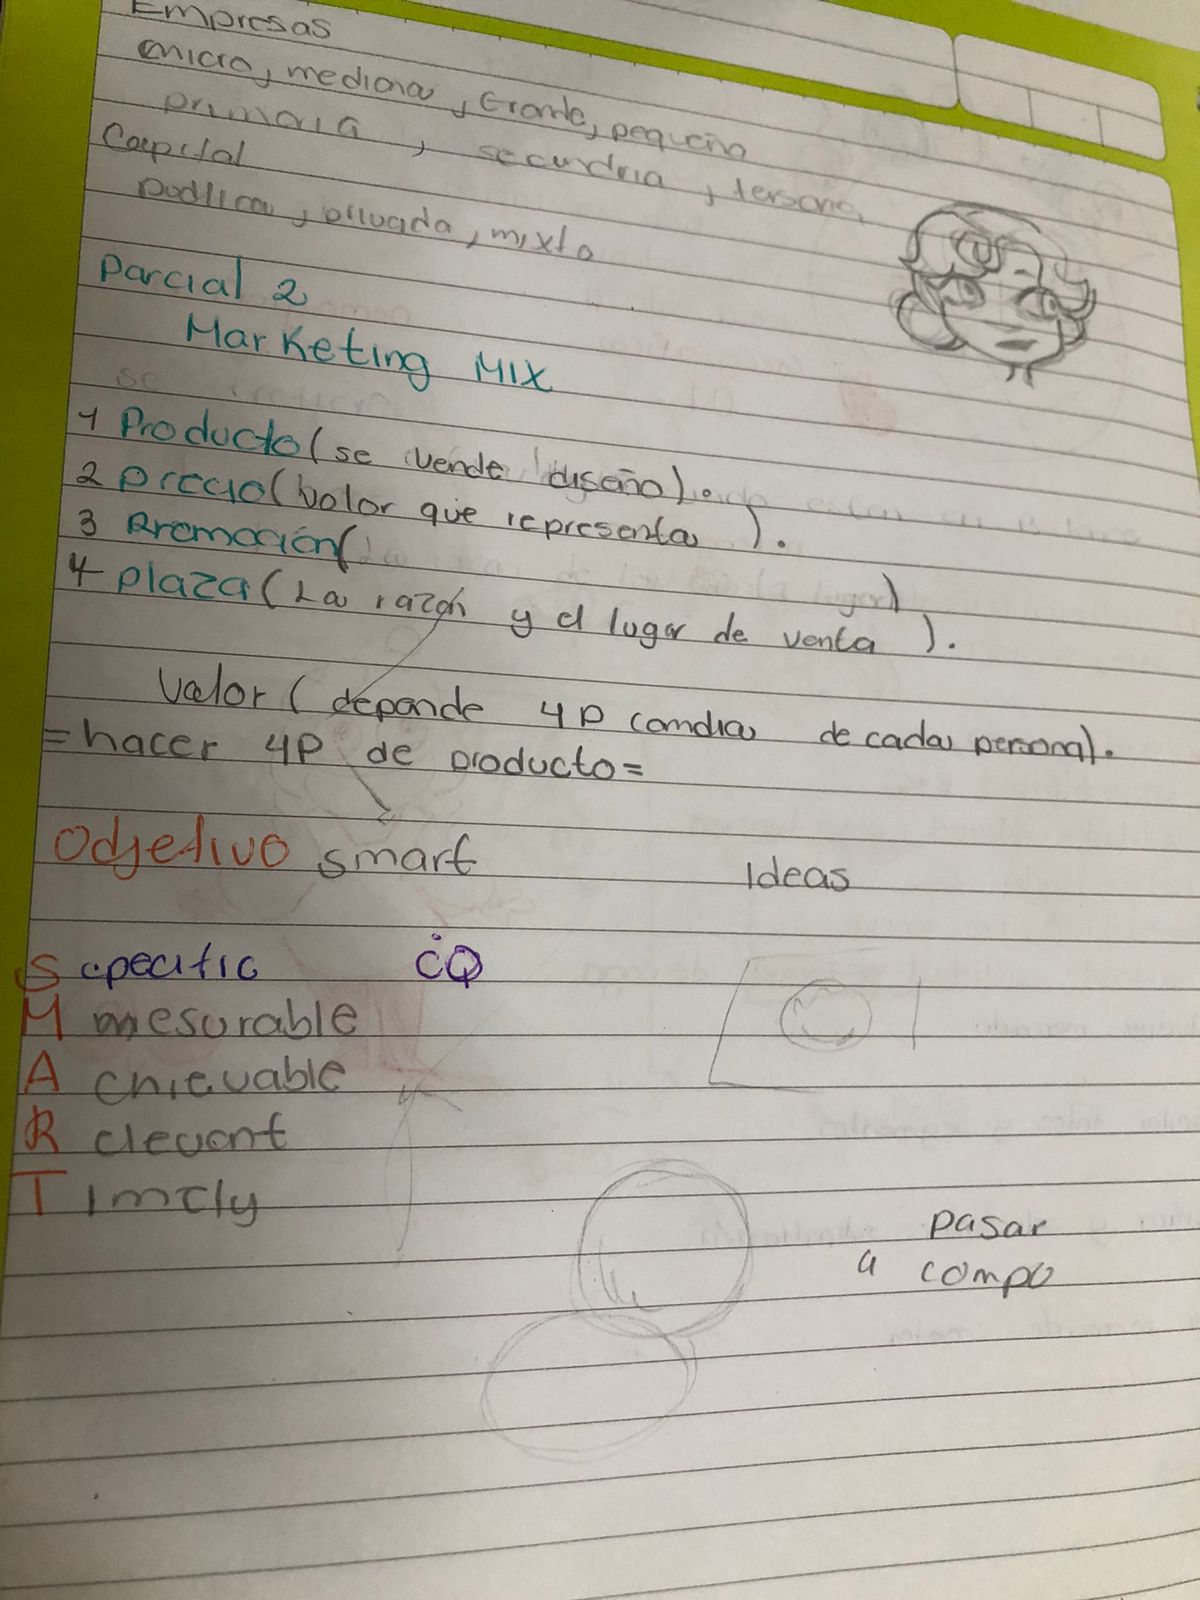 Empresas
micro, mediana, Grande, pequeña
primaria, secundria, tersaria
Capital
publica, privada, mixta
Parcial 2
Marketing MIX
1 Producto (se vende diseño).
2 precio (valor que representa ).
3 Promoción(
4 plaza (La razón y el lugar de venta ).
Valor ( depende 4P cambia de cada persona).
= hacer 4P de producto =
Odjetivo smart
Ideas
S specific ¿Q
M mesurable
A chievable
R elevant
T imely
pasar
a compo